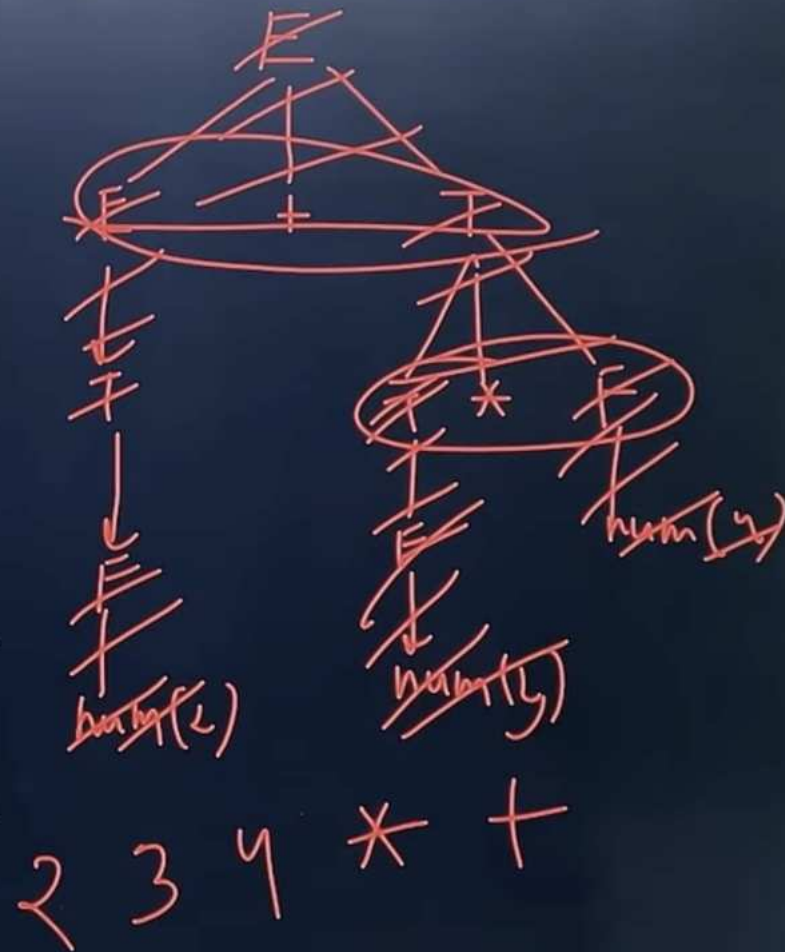 E
E + T
T
T * F
F
F
num(4)
num(2)
num(3)
2 3 4 * +